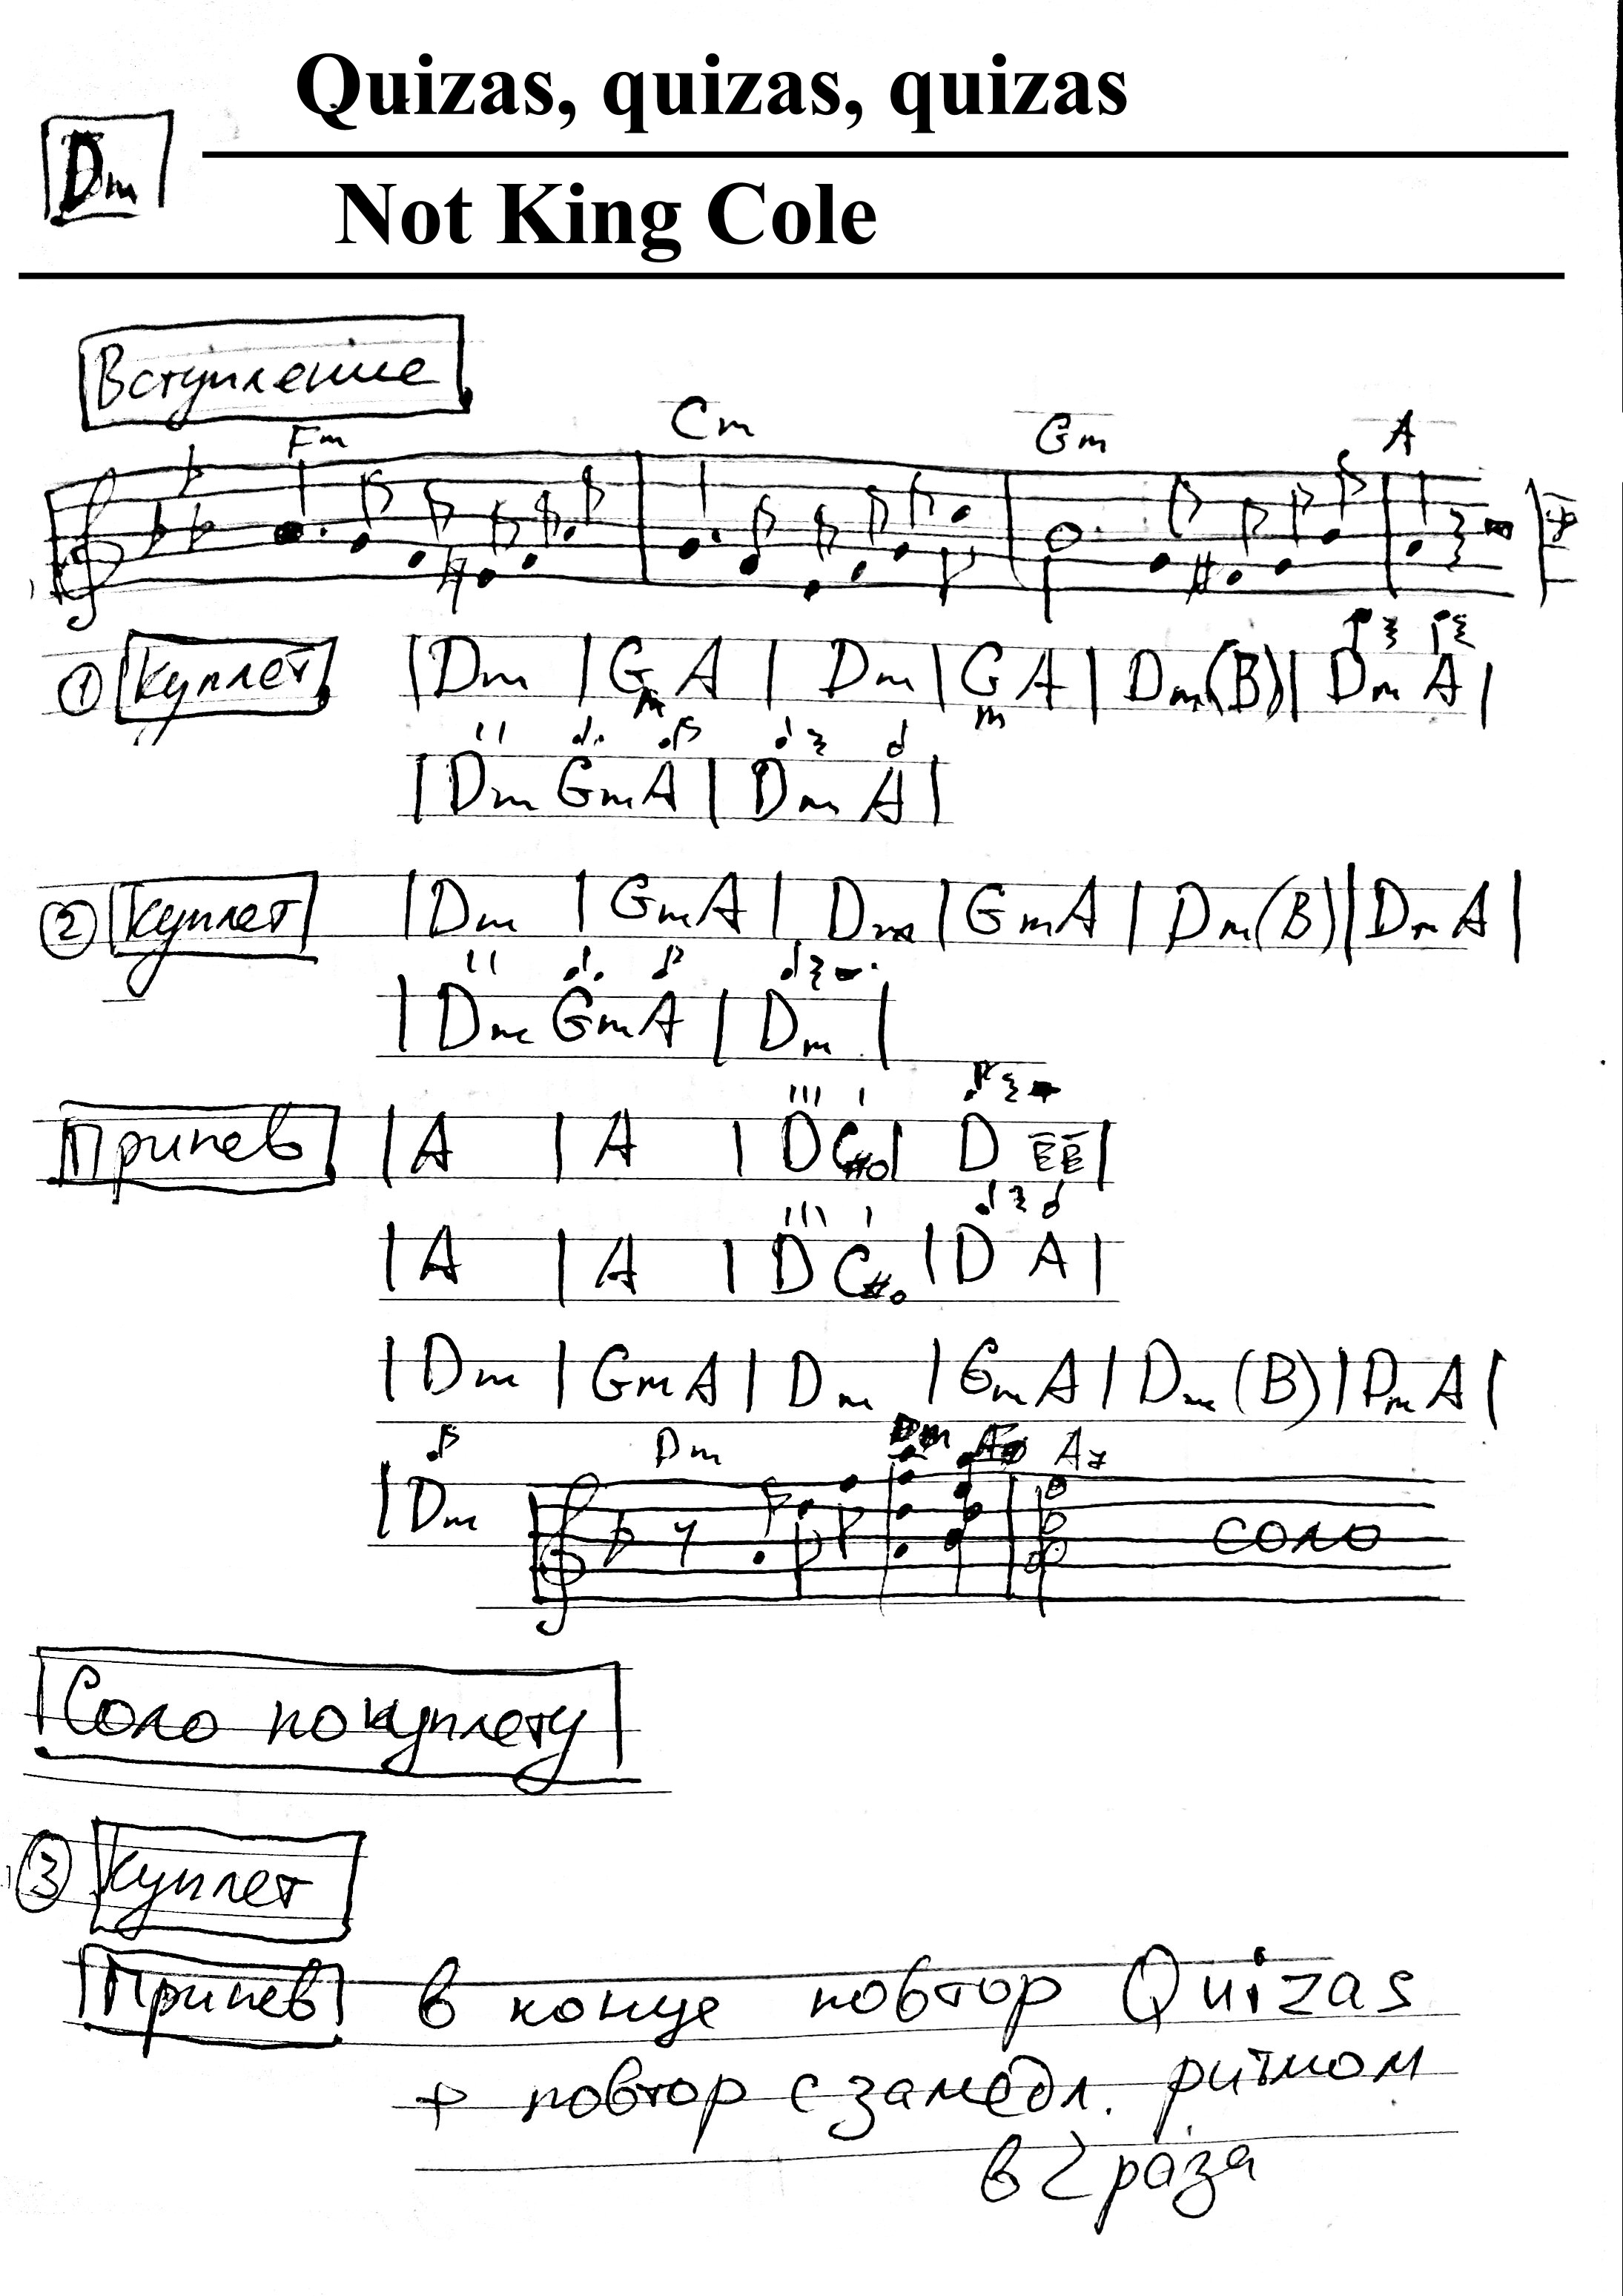 Quizas, quizas, quizas
Dm
Not King Cole
Вступление
Fm Cm Gm A
① Куплет | Dm | Gm A | Dm | Gm A | Dm (B) | Dm A |
| Dm Gm A | Dm A |
② Куплет | Dm | Gm A | Dm | Gm A | Dm (B) | Dm A |
| Dm Gm A | Dm |
Припев | A | A | D C#o | D E E |
| A | A | D C#o | D A |
| Dm | Gm A | Dm | Gm A | Dm (B) | Dm A |
Dm Dm A7
| Dm соло
Соло по куплету
③ Куплет
Припев в конце повтор Quizas
+ повтор с замедл. ритмом
в 2 раза